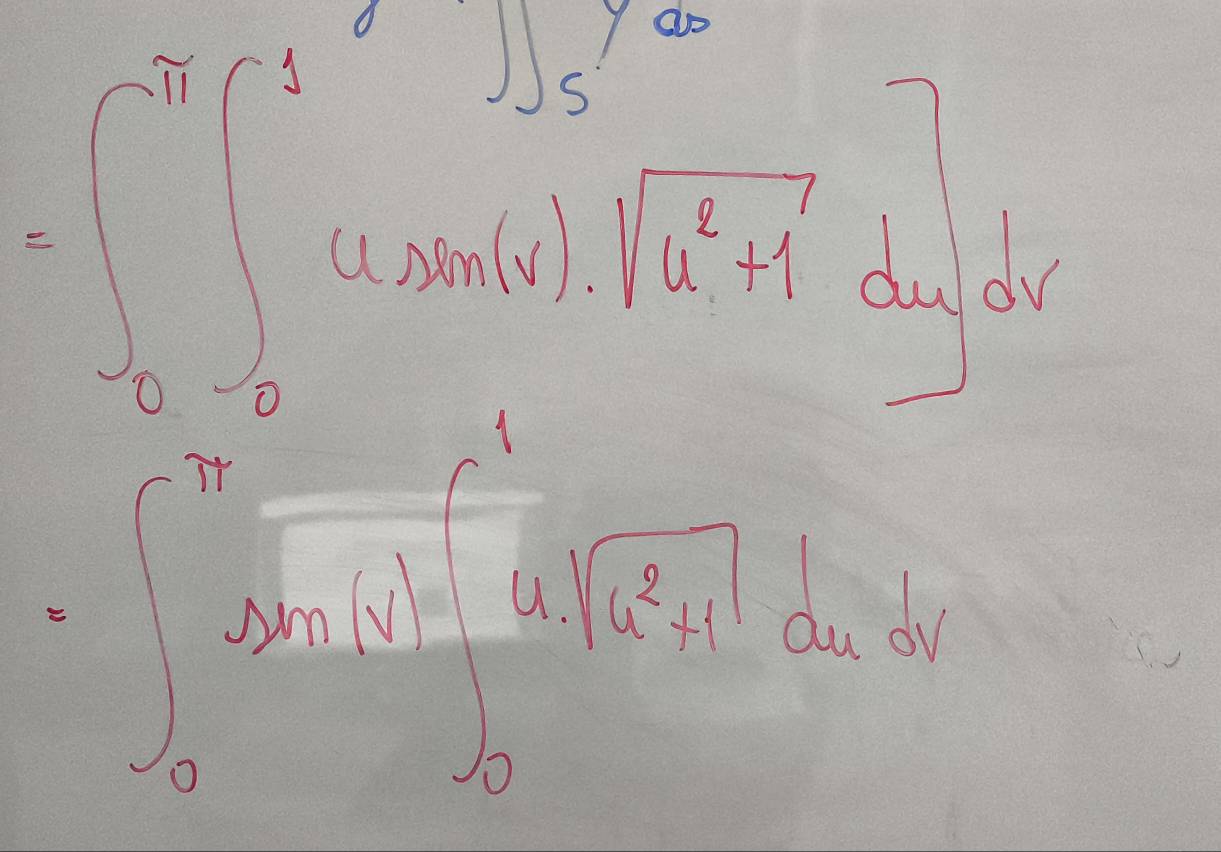 ∬_S y ds
= ∫_0^π ∫_0^1 u sen(v) . √(u² + 1) du ] dv
= ∫_0^π sen(v) ∫_0^1 u . √(u² + 1) du dv